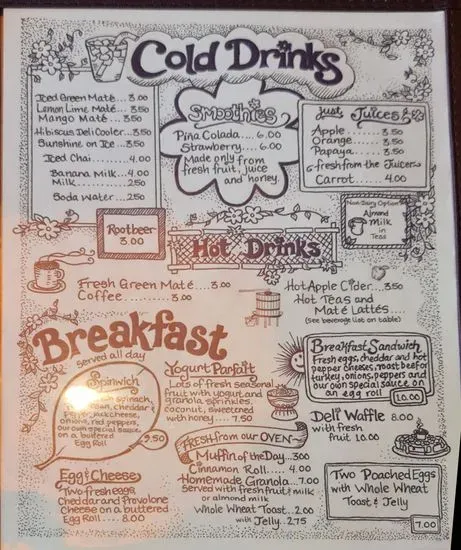 Cold Drinks
Iced Green Maté... 3.00
Lemon Lime Maté... 3.50
Mango Maté... 3.50
Hibiscus Deli Cooler... 3.50
Sunshine on Ice... 3.50
Iced Chai... 4.00
Banana Milk... 4.00
Milk... 2.50
Soda Water... 2.50
Smoothies
Piña Colada.... 6.00
Strawberry.... 6.00
Made only from
fresh fruit, juice
and honey.
Just Juices
Apple.... 3.50
Orange.... 3.50
Papaya.... 3.50
fresh from the Juicer
Carrot.... 4.00
Non-Dairy Option
Almond
Milk
in
Teas
Rootbeer
3.00
Hot Drinks
Fresh Green Maté.... 3.00
Coffee.......... 3.00
Hot Apple Cider... 3.50
Hot Teas and
Maté Lattés....
(See beverage list on table)
Breakfast
Served all day
Spinwich
spinach,
cheddar &
pepper jack cheese,
onions, red peppers,
our own special sauce
on a buttered
Egg Roll
9.50
Egg & Cheese
Two fresh eggs,
Cheddar and Provolone
Cheese on a buttered
Egg Roll..... 8.00
Yogurt Parfait
Lots of fresh seasonal
fruit with yogurt and
granola sprinkles,
coconut, sweetened
with honey..... 7.50
FRESH from our OVEN
Muffin of the Day...3.00
Cinnamon Roll.... 4.00
Homemade Granola..7.00
Served with fresh fruit & milk
or almond milk
Whole Wheat Toast.. 2.00
with Jelly.. 2.75
Breakfast Sandwich
Fresh eggs, cheddar and hot
pepper cheeses, roast beef or
turkey, onions, peppers and
our own special sauce on
an egg roll
10.00
Deli Waffle 8.00
with fresh
fruit 10.00
Two Poached Eggs
with Whole Wheat
Toast & Jelly
7.00